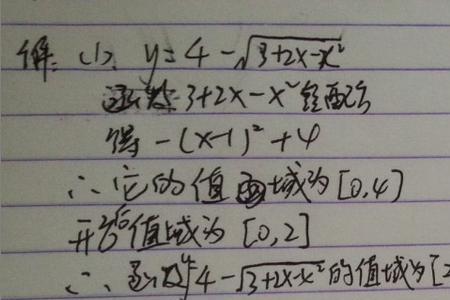 解: (1). y=4-√3+2x-x²
函数 3+2x-x² 经配方
得 -(x-1)²+4
∴它的值域为[0,4]
开方后值域为 [0,2]
∴函数y=4-√3+2x-x² 的值域为[2